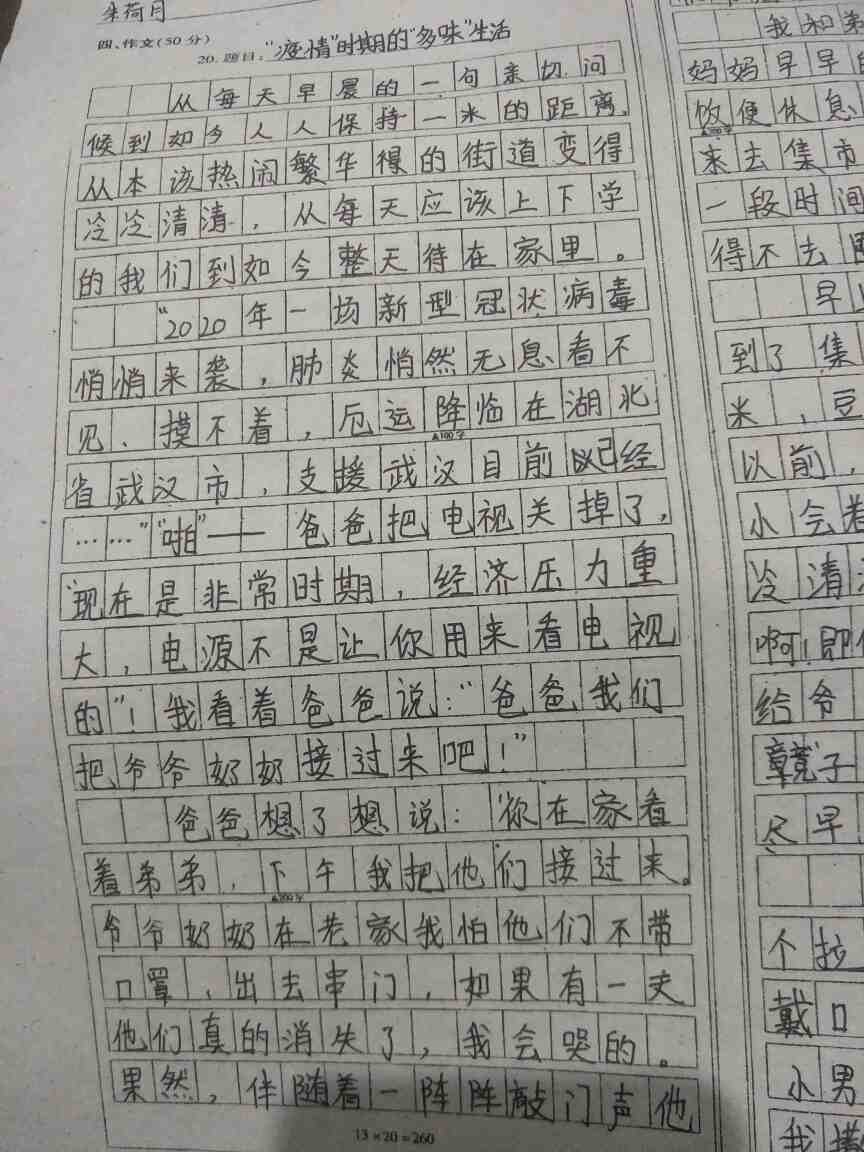 朱荷月
四、作文(50分)
20.题目:“疫情”时期的“多味”生活
从每天早晨的一句亲切问
候到如今人人保持一米的距离,
从本该热闹繁华得的街道变得
冷冷清清,从每天应该上下学
的我们到如今整天待在家里。
“2020年一场新型冠状病毒
悄悄来袭,肺炎悄然无息看不
见、摸不着,厄运降临在湖北
▲100字
省武汉市,支援武汉目前以已经
……”“啪”——爸爸把电视关掉了,
“现在是非常时期,经济压力重
大,电源不是让你用来看电视
的”!我看着爸爸说:“爸爸我们
把爷爷奶奶接过来吧!”
爸爸想了想说:“你在家看
着弟弟,下午我把他们接过来。
▲200字
爷爷奶奶在老家我怕他们不带
口罩,出去串门,如果有一天
他们真的消失了,我会哭的。
果然,伴随着一阵阵敲门声他
13×20=260
我和弟
妈妈早早的
饭便休息
▲300字
来去集市
一段时间
得不去
早
到了集
米,豆
以前,
小会着
冷清
啊!即
给爷
子
尽早
个拉
戴口
小男
我